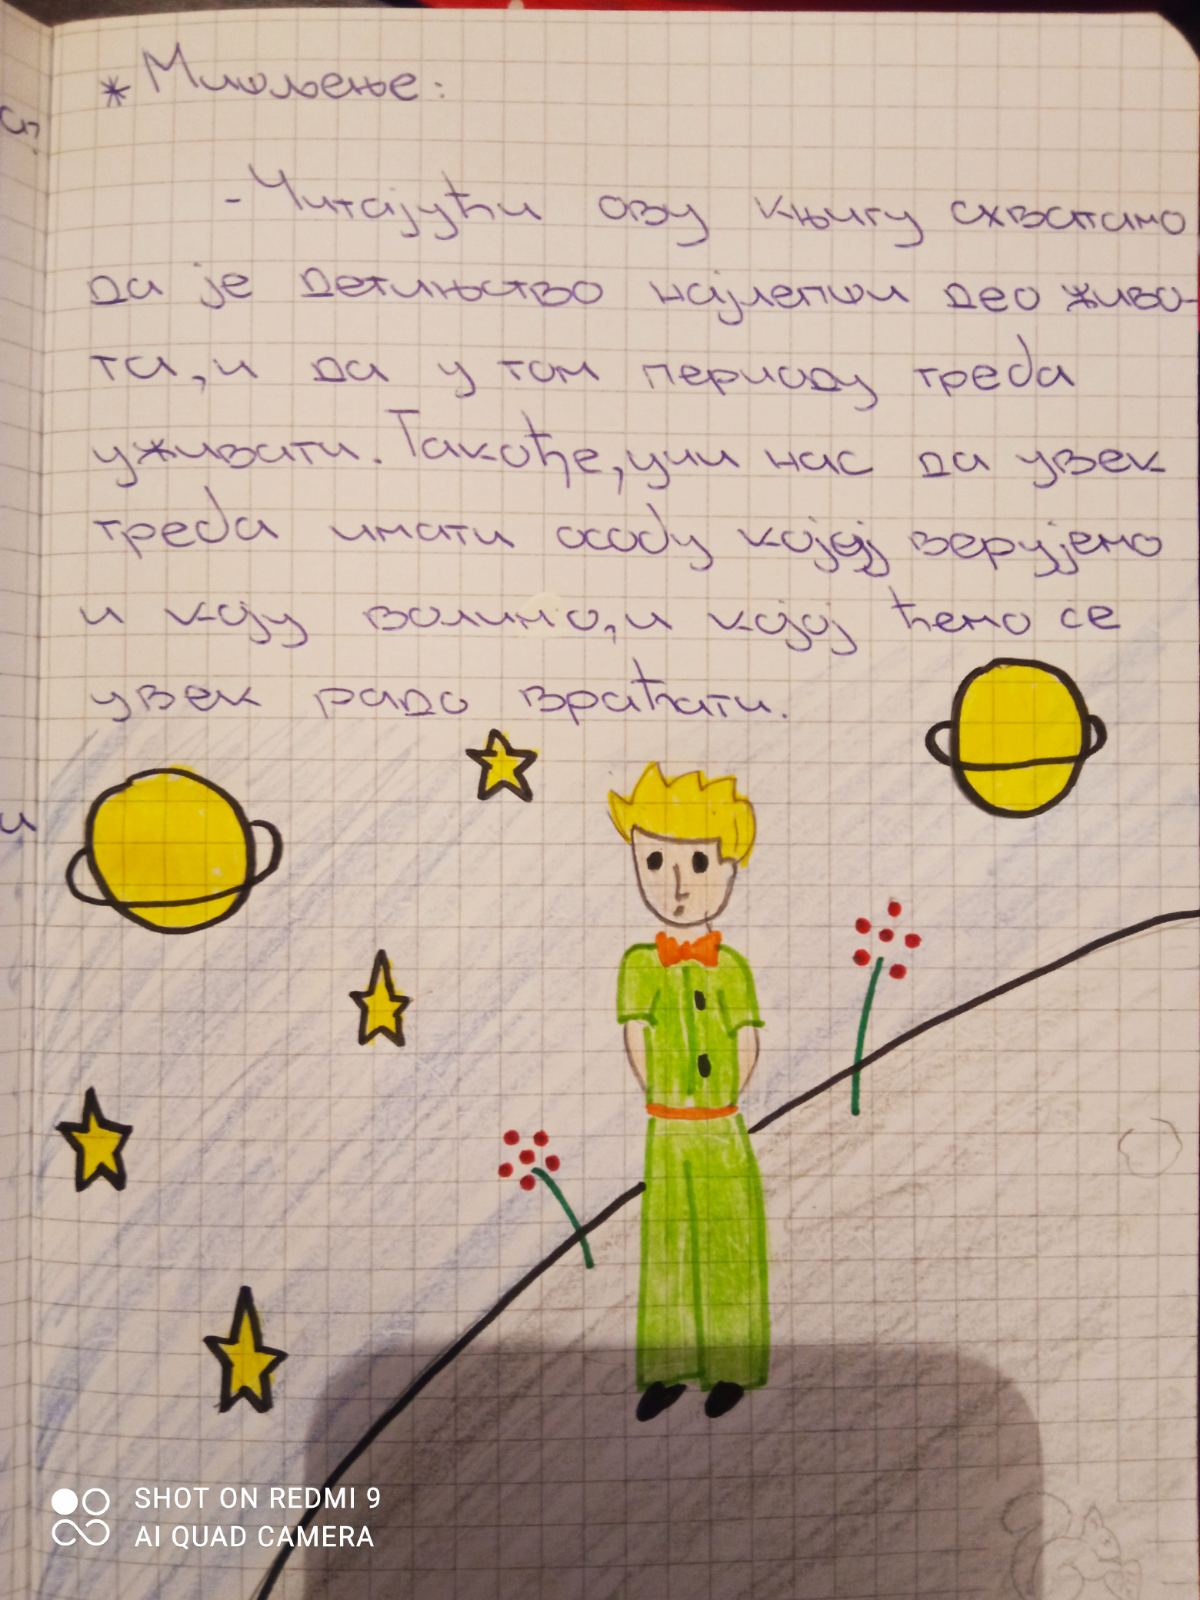 * Мишљење:
- Читајући ову књигу схватамо
да је детињство најлепши део живо-
та, и да у том периоду треба
уживати. Такође, учи нас да увек
треба имати особу којој верујемо
и коју волимо, и којој ћемо се
увек радо враћати.
и
SHOT ON REDMI 9
AI QUAD CAMERA